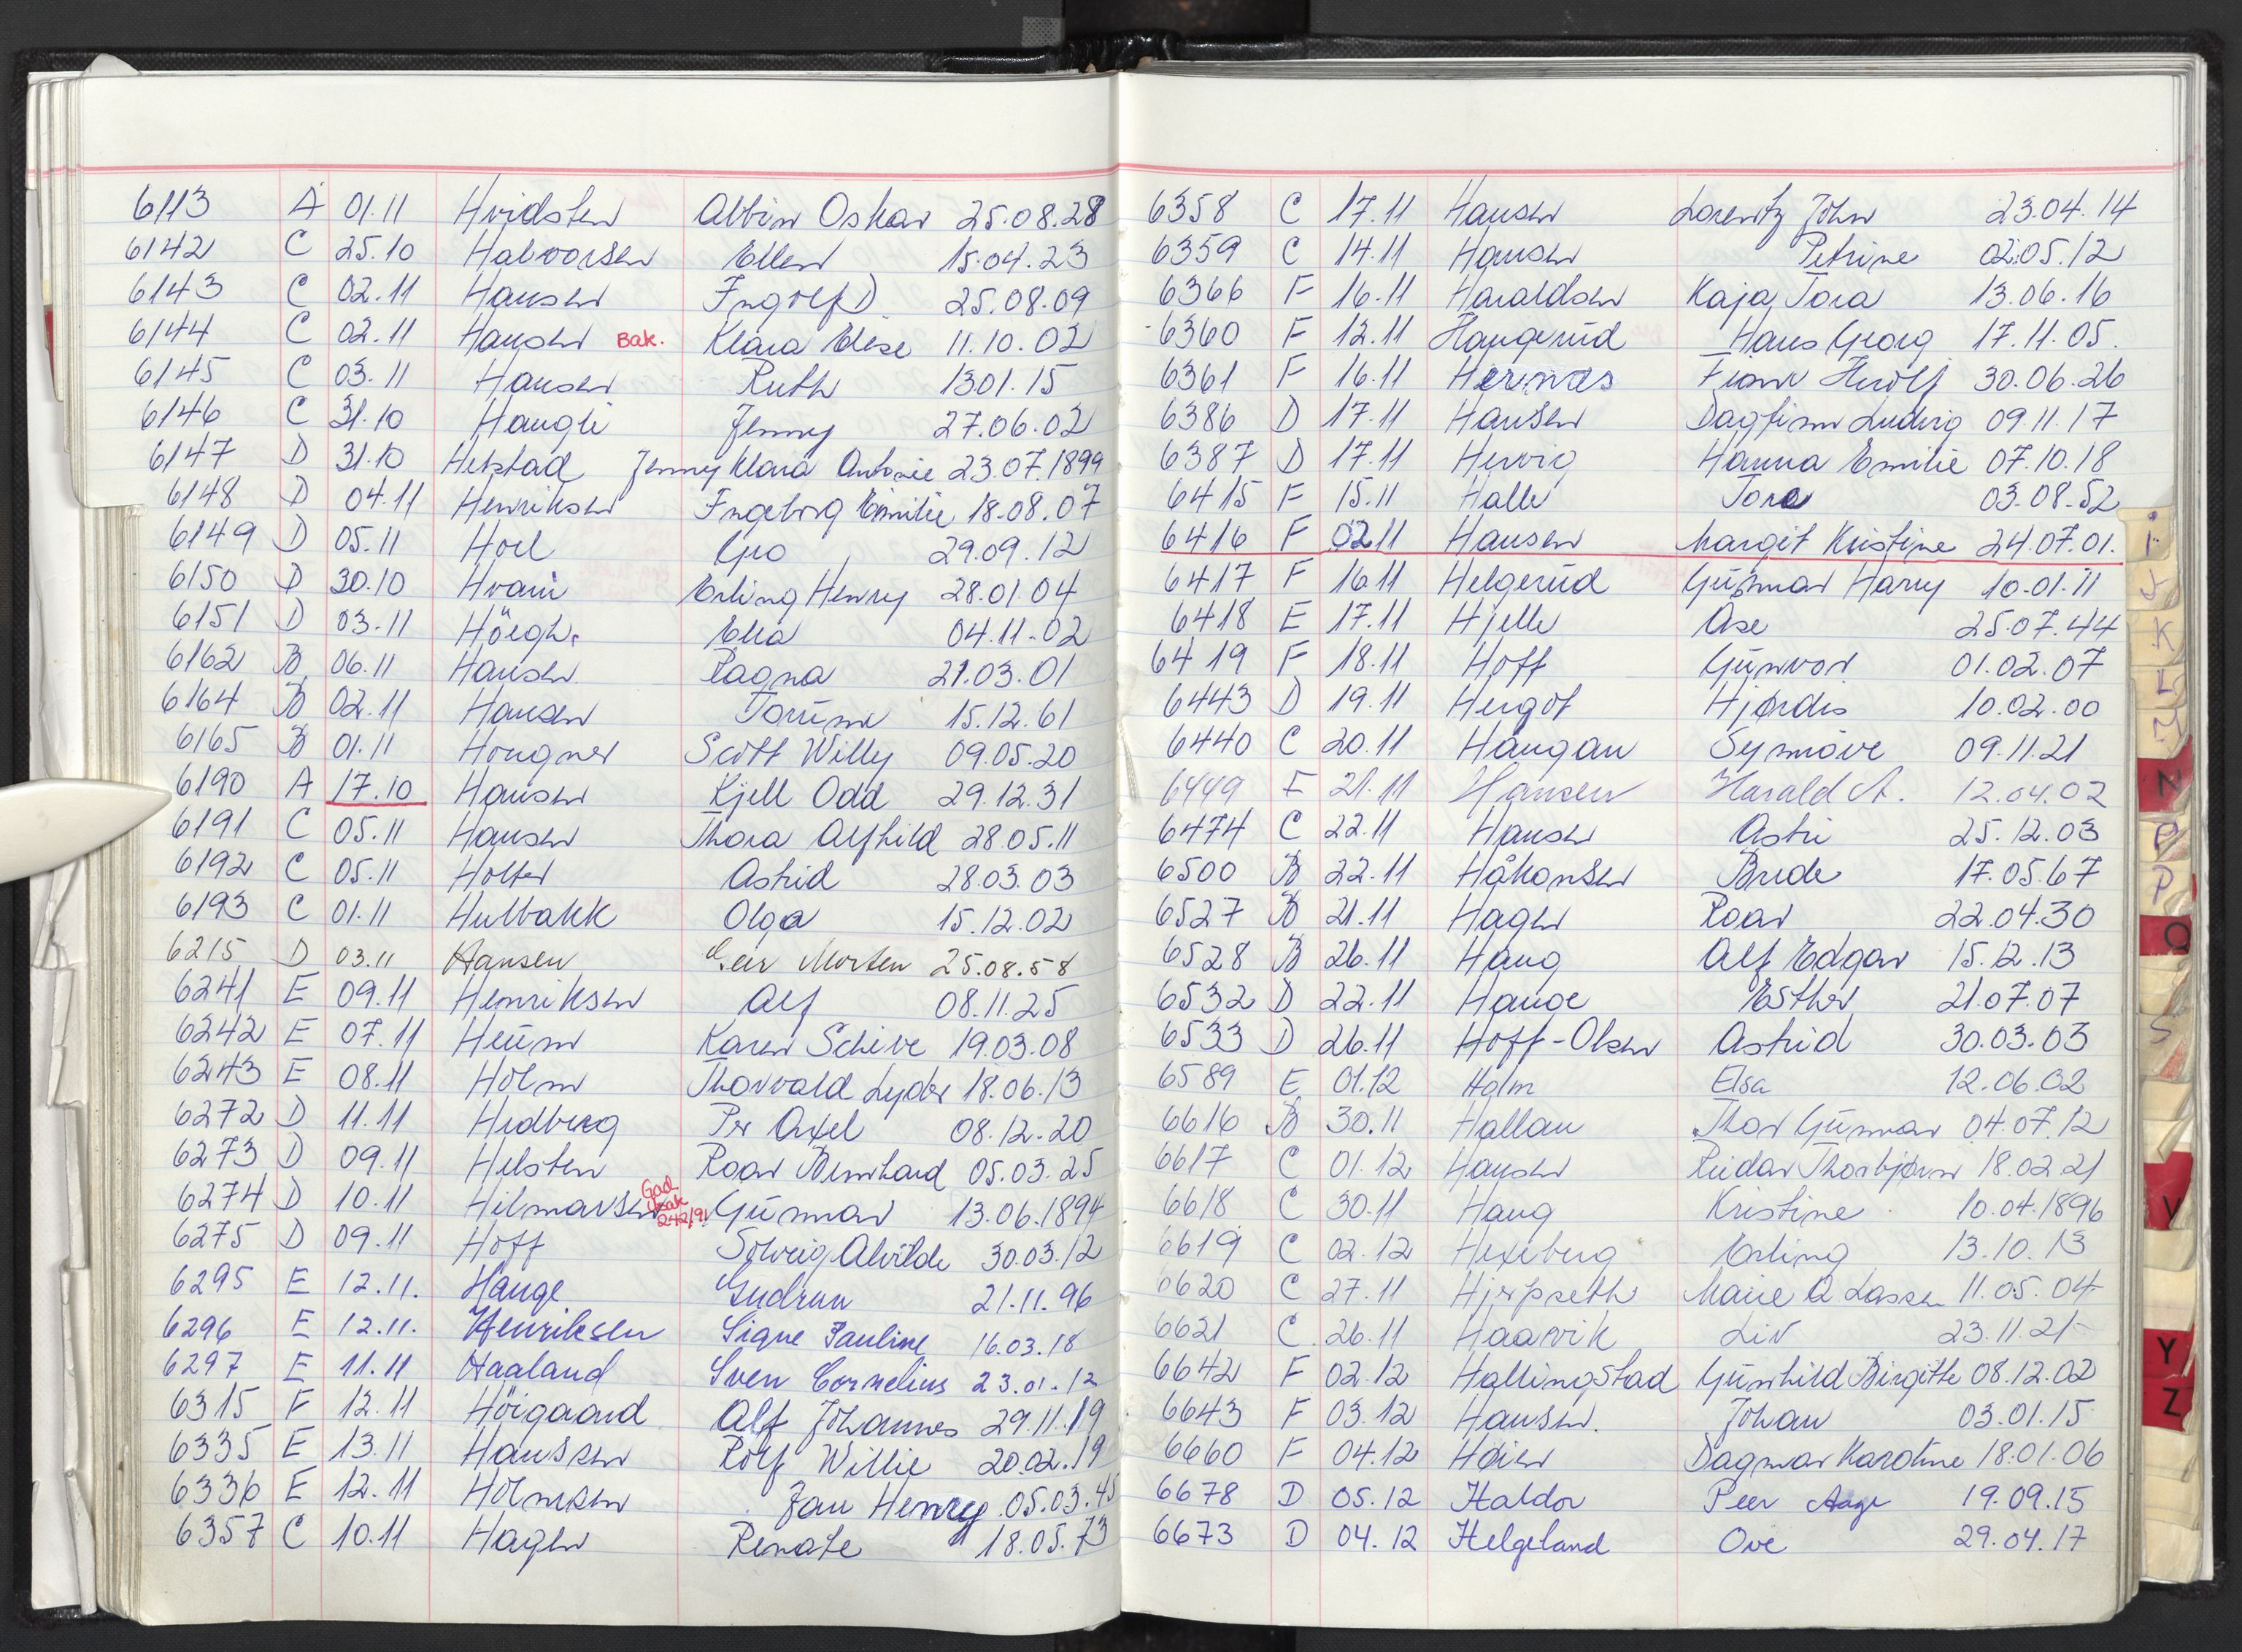 6113 A 01.11 Hvidsten Albin Oskar 25.08.28
6142 C 25.10 Halvorsen Ellen 15.04.23
6143 C 02.11 Hansen Ingolf D. 25.08.09
6144 C 02.11 Hansen Bak. Klara Elise 11.10.02
6145 C 03.11 Hansen Ruth 1301.15
6146 C 31.10 Haugli Jenny 27.06.02
6147 D 31.10 Helstad Jenny Klara Antonie 23.07.1899
6148 D 04.11 Henriksen Ingeborg Emilie 18.08.07
6149 D 05.11 Hoel Gro 29.09.12
6150 D 30.10 Hvam Erling Henry 28.01.04
6151 D 03.11 Höegh Elsa 04.11.02
6162 B 06.11 Hansen Ragna 21.03.01
6164 B 02.11 Hansen Torunn 15.12.61
6165 B 01.11 Hougner Scott Willy 09.05.20
6190 A 17.10 Hansen Kjell Odd 29.12.31
6191 C 05.11 Hansen Thora Alfhild 28.05.11
6192 C 05.11 Holter Astrid 28.03.03
6193 C 01.11 Hulbakk Olga 15.12.02
6215 D 03.11 Hansen Geir Morten 25.08.58
6241 E 09.11 Henriksen Alf 08.11.25
6242 E 07.11 Heum Karen Schive 19.03.08
6243 E 08.11 Holm Thorvald Lyder 18.06.13
6272 D 11.11 Hedberg Per Axel 08.12.20
6273 D 09.11 Helsten Roar Bernhard 05.03.25
6274 D 10.11 Hilmarsen Gad. bak 242/91 Gunnar 13.06.1894
6275 D 09.11 Hoff Solveig Alvilde 30.03.12
6295 E 12.11. Hauge Gudrun 21.11.96
6296 E 12.11. Henriksen Signe Pauline 16.03.18
6297 E 11.11 Haaland Sven Cornelius 23.01.12
6315 F 12.11 Höigaard Alf Johannes 29.11.19
6335 E 13.11 Hanssen Rolf Willie 20.02.19
6336 E 12.11 Holmsen Jan Henry 05.03.45
6357 C 10.11 Hagen Renate 18.05.73
6358 C 17.11 Hansen Lorentz John 23.04.14
6359 C 14.11 Hansen Petrine 02.05.12
6366 F 16.11 Haraldsen Kaja Tora 13.06.16
6360 F 12.11 Haugerud Hans Georg 17.11.05.
6361 F 16.11 Hernæs Finn Herolf 30.06.26
6386 D 17.11 Hansen Dagfinn Ludvig 09.11.17
6387 D 17.11 Hervig Hanna Emilie 07.10.18
6415 F 15.11 Halle Tore 03.08.52
6416 F 02.11 Hansen Margit Kristine 24.07.01.
6417 F 16.11 Helgerud Gunnar Harry 10.01.11
6418 E 17.11 Hjelle Åse 25.07.44
6419 F 18.11 Hoff Gunvor 01.02.07
6443 D 19.11 Hergot Hjørdis 10.02.00
6440 C 20.11 Haugan Synnøve 09.11.21
6449 F 21.11 Hansen Harald A. 12.04.02
6474 C 22.11 Hansen Astri 25.12.03
6500 B 22.11 Håkonsen Brede 17.05.67
6527 B 21.11 Hagen Roar 22.04.30
6528 B 26.11 Haug Alf Edgar 15.12.13
6532 D 22.11 Hauge Esther 21.07.07
6533 D 26.11 Hoff-Olsen Astrid 30.03.03
6589 E 01.12 Holm Elsa 12.06.02
6616 B 30.11 Hallan Thor Gunnar 04.07.12
6617 C 01.12 Hansen Reidar Thorbjørn 18.02.21
6618 C 30.11 Haug Kristine 10.04.1896
6619 C 02.12 Hexeberg Erling 13.10.13
6620 C 27.11 Marie Q Lassen 11.05.04
6621 C 26.11 Haarvik Liv 23.11.21
6642 F 02.12 Hallingstad Gunhild Birgitte 08.12.02
6643 F 03.12 Hansen. Johan 03.01.15
6660 F 04.12 Høier Dagmar Karoline 18.01.06
6678 D 05.12 Haldor Peer Aage 19.09.15
6673 D 04.12 Helgeland Ove 29.04.17
i
J
K
L
N
P
Q
S
V
Y
Z